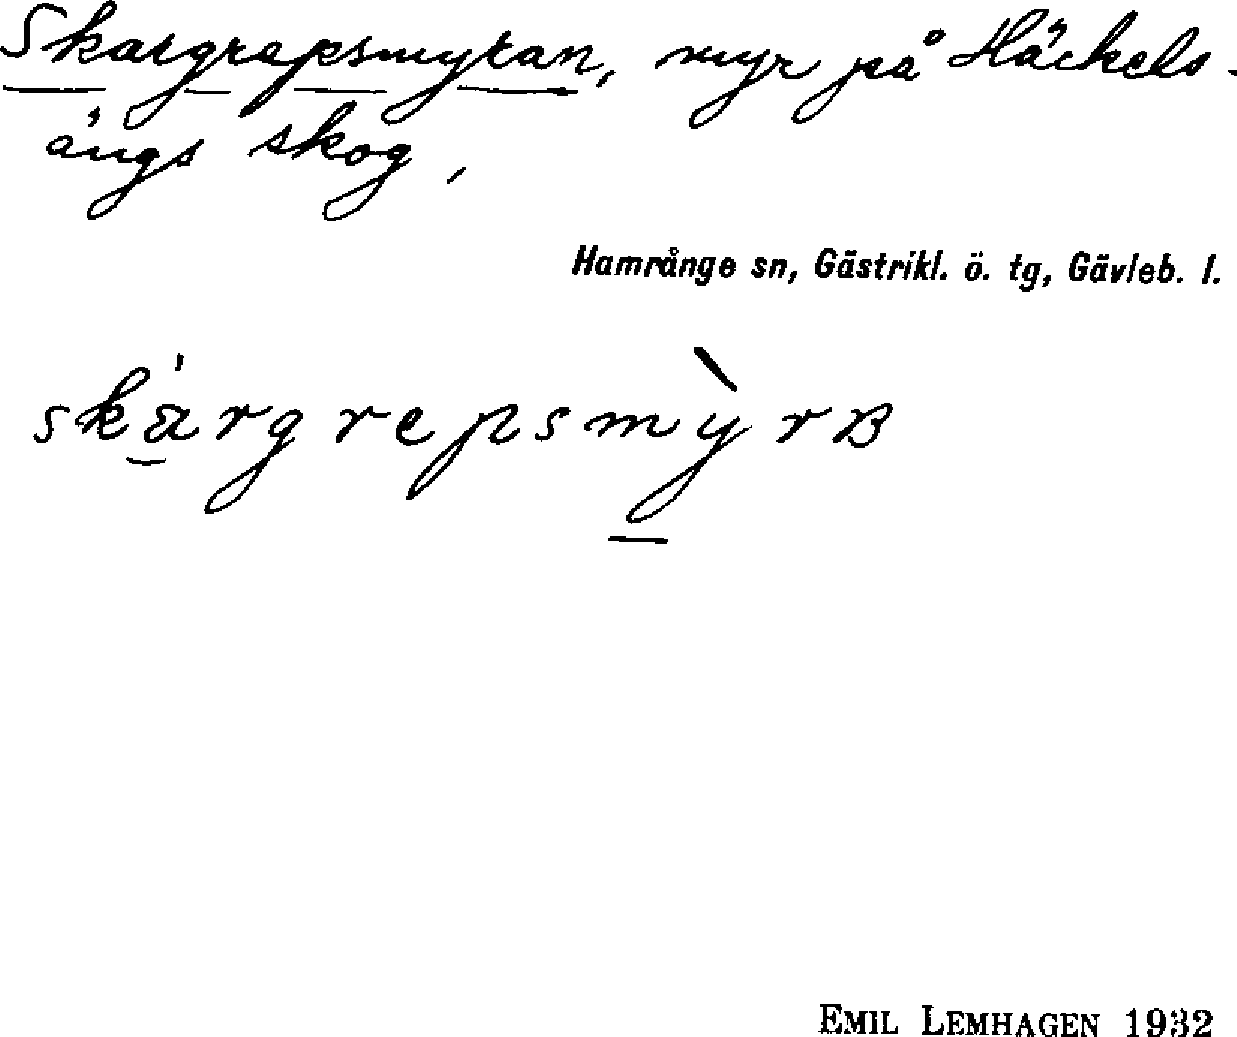 Skargrepsmyran, myr på Häckels-
ängs skog,
Hamrånge sn, Gästrikl. ö. tg, Gävleb. l.
skárgrepsmỳrB
EMIL LEMHAGEN 1932